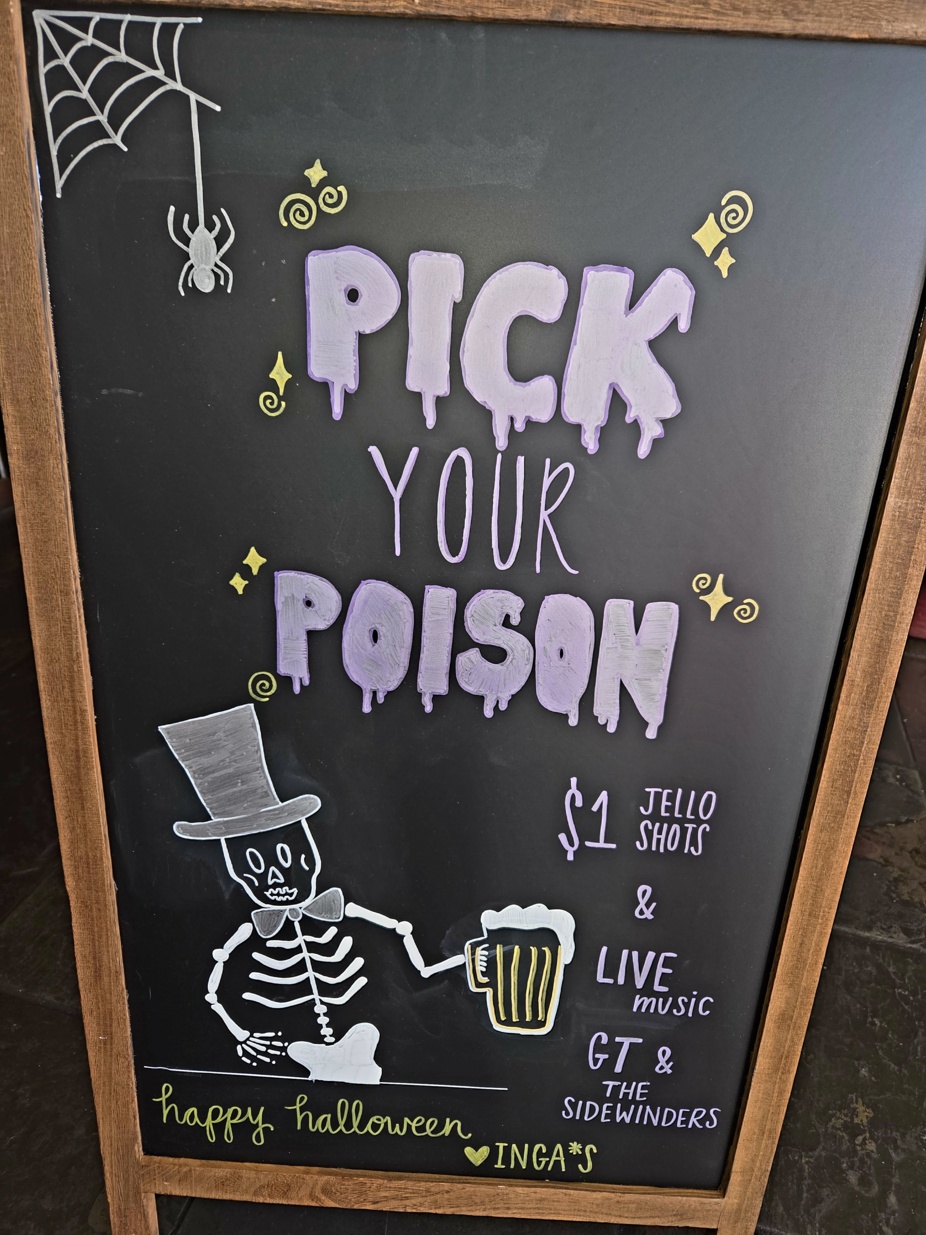 PICK
YOUR
POISON
$1 JELLO
SHOTS
&
LIVE
music
GT &
THE
SIDEWINDERS
happy halloween
INGA*S